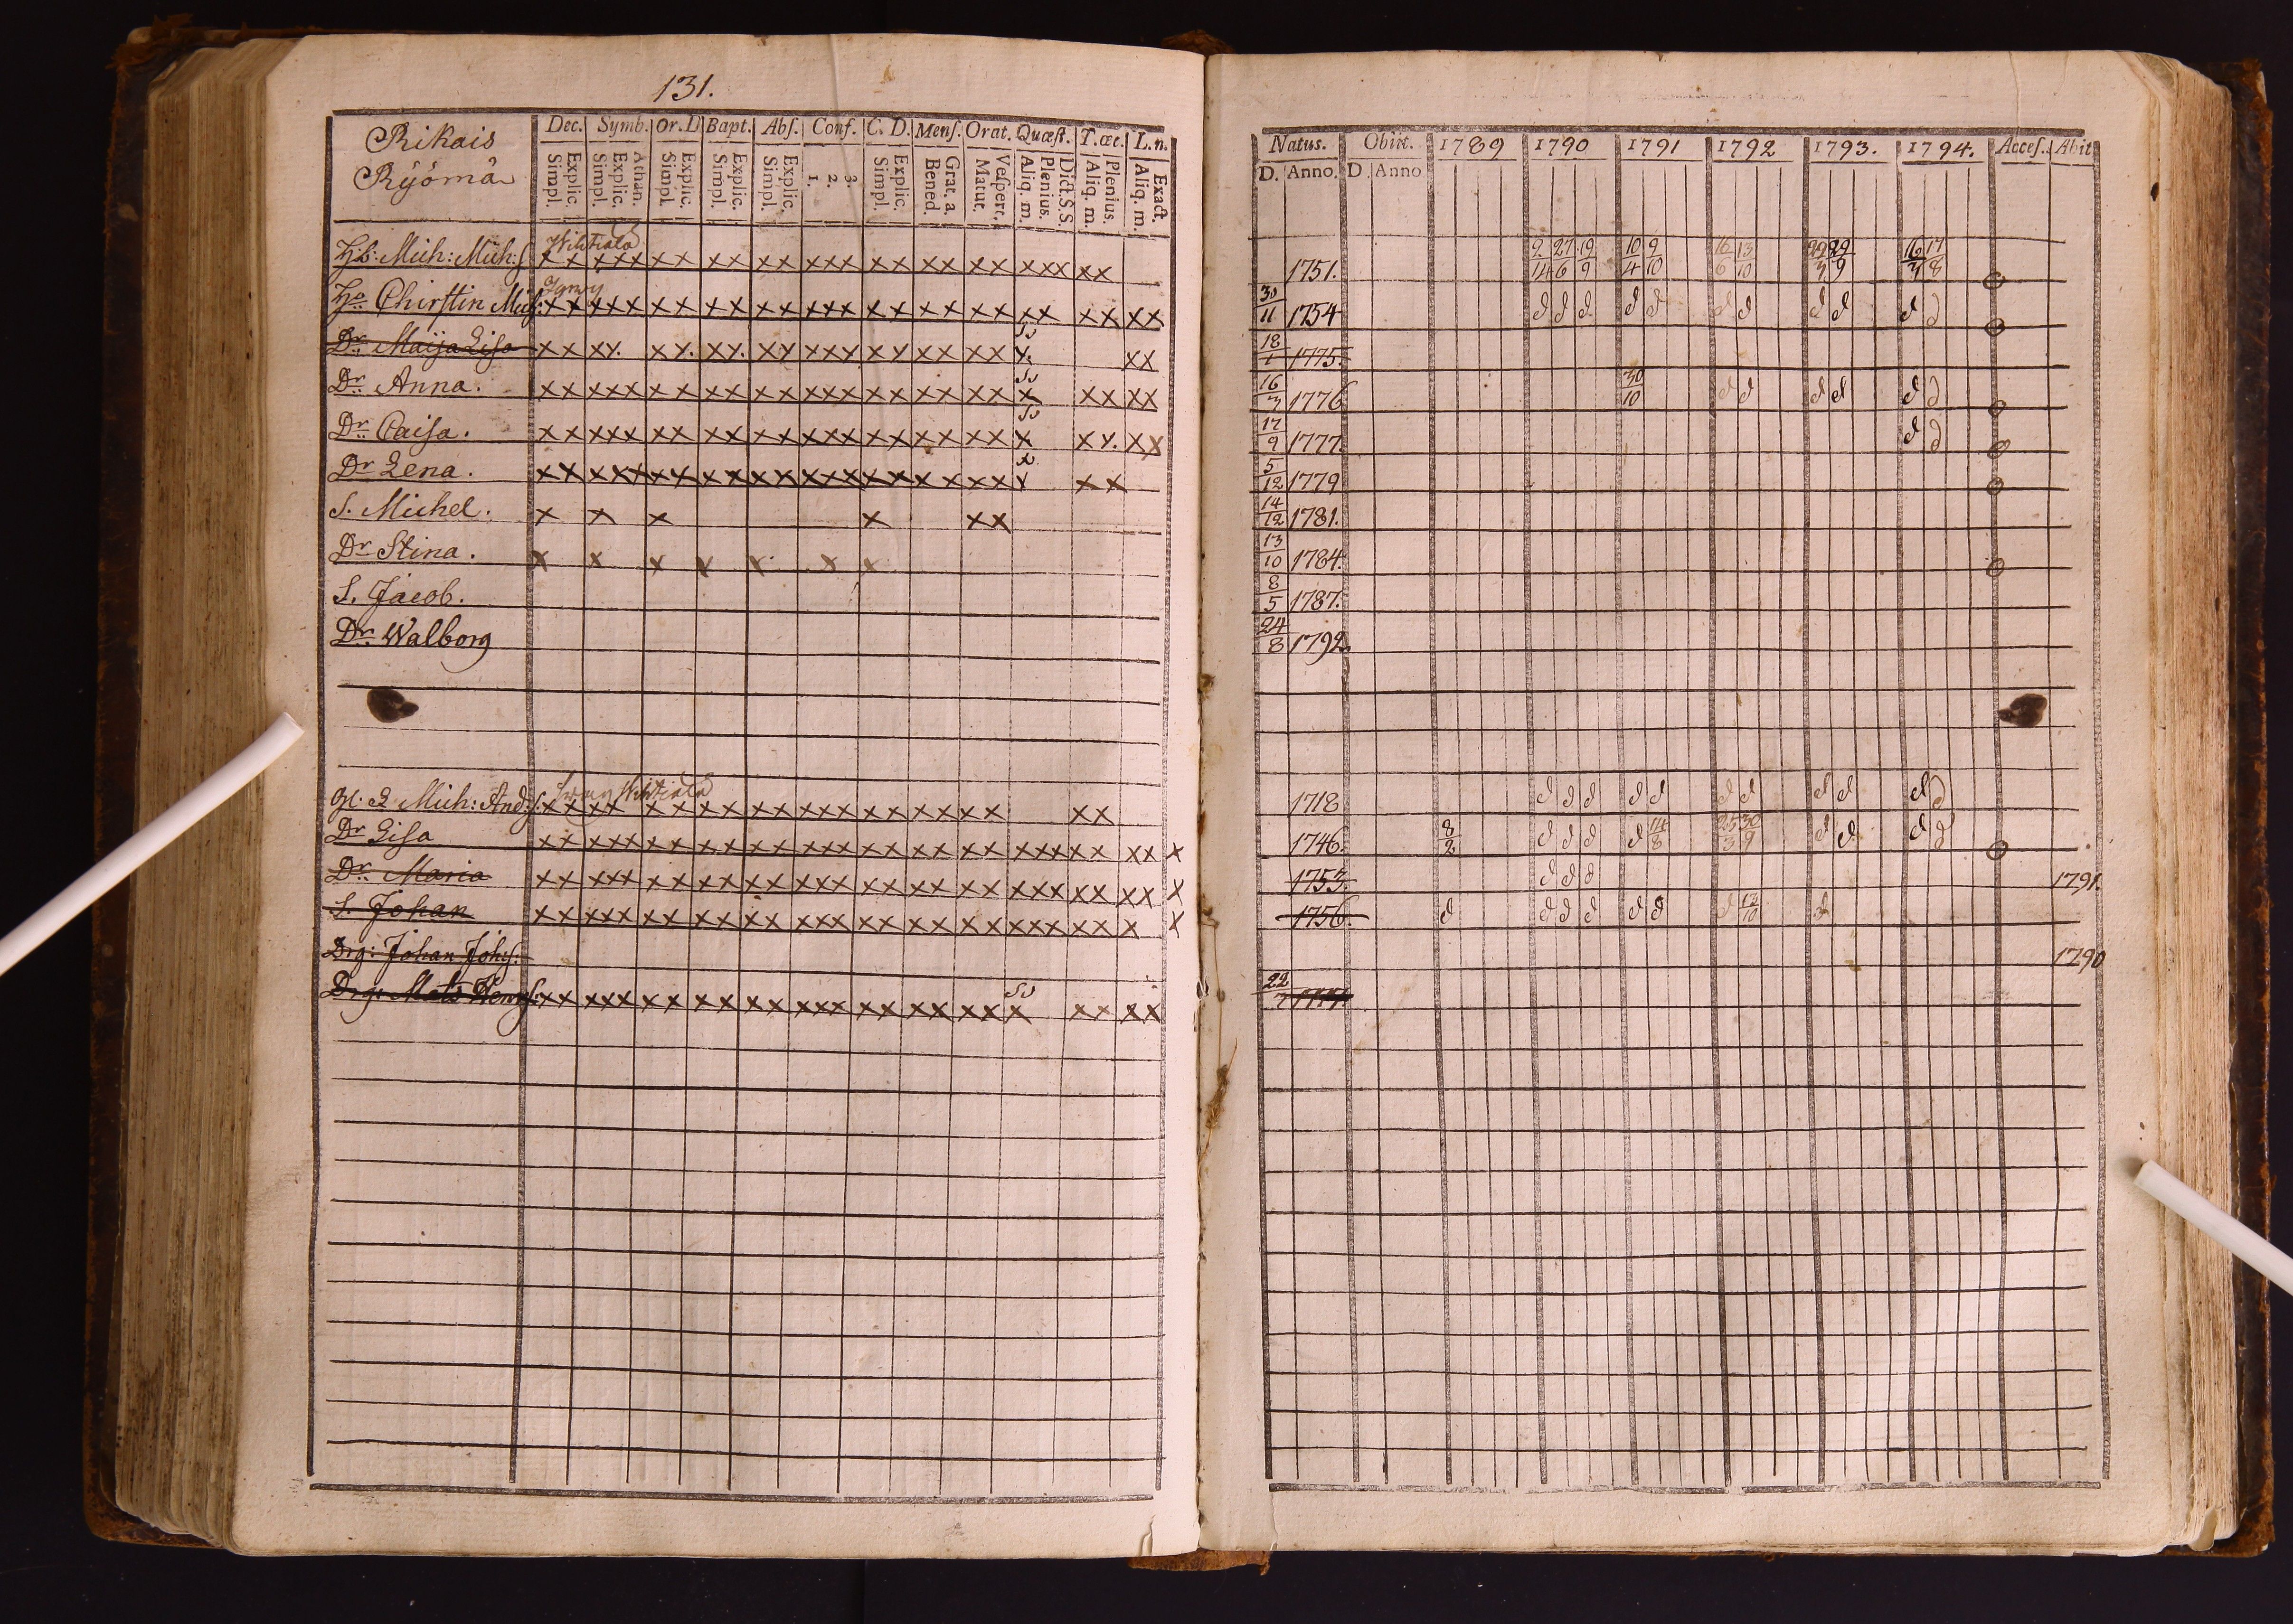 131.
Rikais
Ryömä
Dec. Symb. Or. D Bapt. Abſ. Conf. C. D. Menſ. Orat. Quæſt. T. œc. L. n.
Simpl. Explic. Simpl. Explic. Athan. Simpl. Explic. Simpl. Explic. Simpl. Explic. 1. 2. 3. Simpl. Explic. Bened. Grat. a. Matut. Veſpert. Aliq. m. Plenius. Dict. S. S. Aliq. m. Plenius. Aliq. m. Exact.
Hb: Mich: Mich: S x x x x x x x x x x x x x x x x x x x x x x x x x x
Hu Chirstin Mich: x x x x x x x x x x x x x x x x x x x x x x x x x x
Dr. Maija Lisa x x x y. x y. x y. x y x x y x y x x x x y. x x
Dr. Anna. x x x x x x x x x x x x x x x x x x x x x x x x x
Dr. Caisa. x x x x x x x x x x x x x x x x x x x x x x y. x x
Dr Lena. x x x x x x x x x x x x x x x x x x x x x x x
S. Michel. x x x x x x
Dr Stina. x x x x x x x
S. Jacob.
Dr. Walborg
Gl: E Mich: And: S. x x x x x x x x x x x x x x x x x x x x x x
Dr Lisa x x x x x x x x x x x x x x x x x x x x x x x x x x x x
Dr. Maria x x x x x x x x x x x x x x x x x x x x x x x x x x x x
S. Johan x x x x x x x x x x x x x x x x x x x x x x x x x x x x
Drg: Johan Johs:
Drg: Mats Henrs: x x x x x x x x x x x x x x x x x x x x x x x x
Natus. Obiit. 1789 1790 1791 1792 1793. 1794. Acceſ. Abit
D. Anno. D. Anno
1751. 9/4 27/6 19/9 10/4 9/10 16/6 13/10 29/9 16/3 17/8
30/11 1754 d d d d d d d d d d d
18/1 1775.
16/3 1776 30/10 d d d d d d
17/9 1777. d d
5/12 1779
14/12 1781.
13/10 1784.
8/5 1787.
24/8 1792
1718 d d d d d d d d d d d
1746. 8/2 d d d d 14/8 25/3 30/9 d d d d
1753. d d d 1791.
1756. d d d d d d d 12/10 d
1790
22